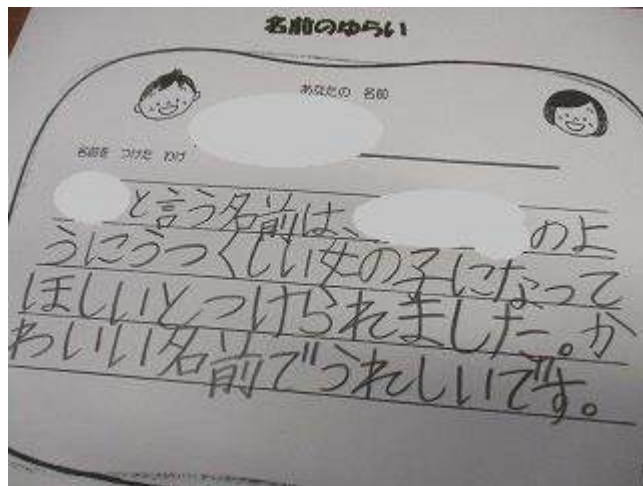 名前のゆらい
あなたの 名前
名前を つけた わけ
と言う名前は、 のよ
うにうつくしい女の子になって
ほしいとつけられました。か
わいい名前でうれしいです。